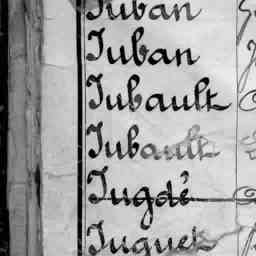 Juban
Juban
Jubault
Jubault
Jugdé
Juguet